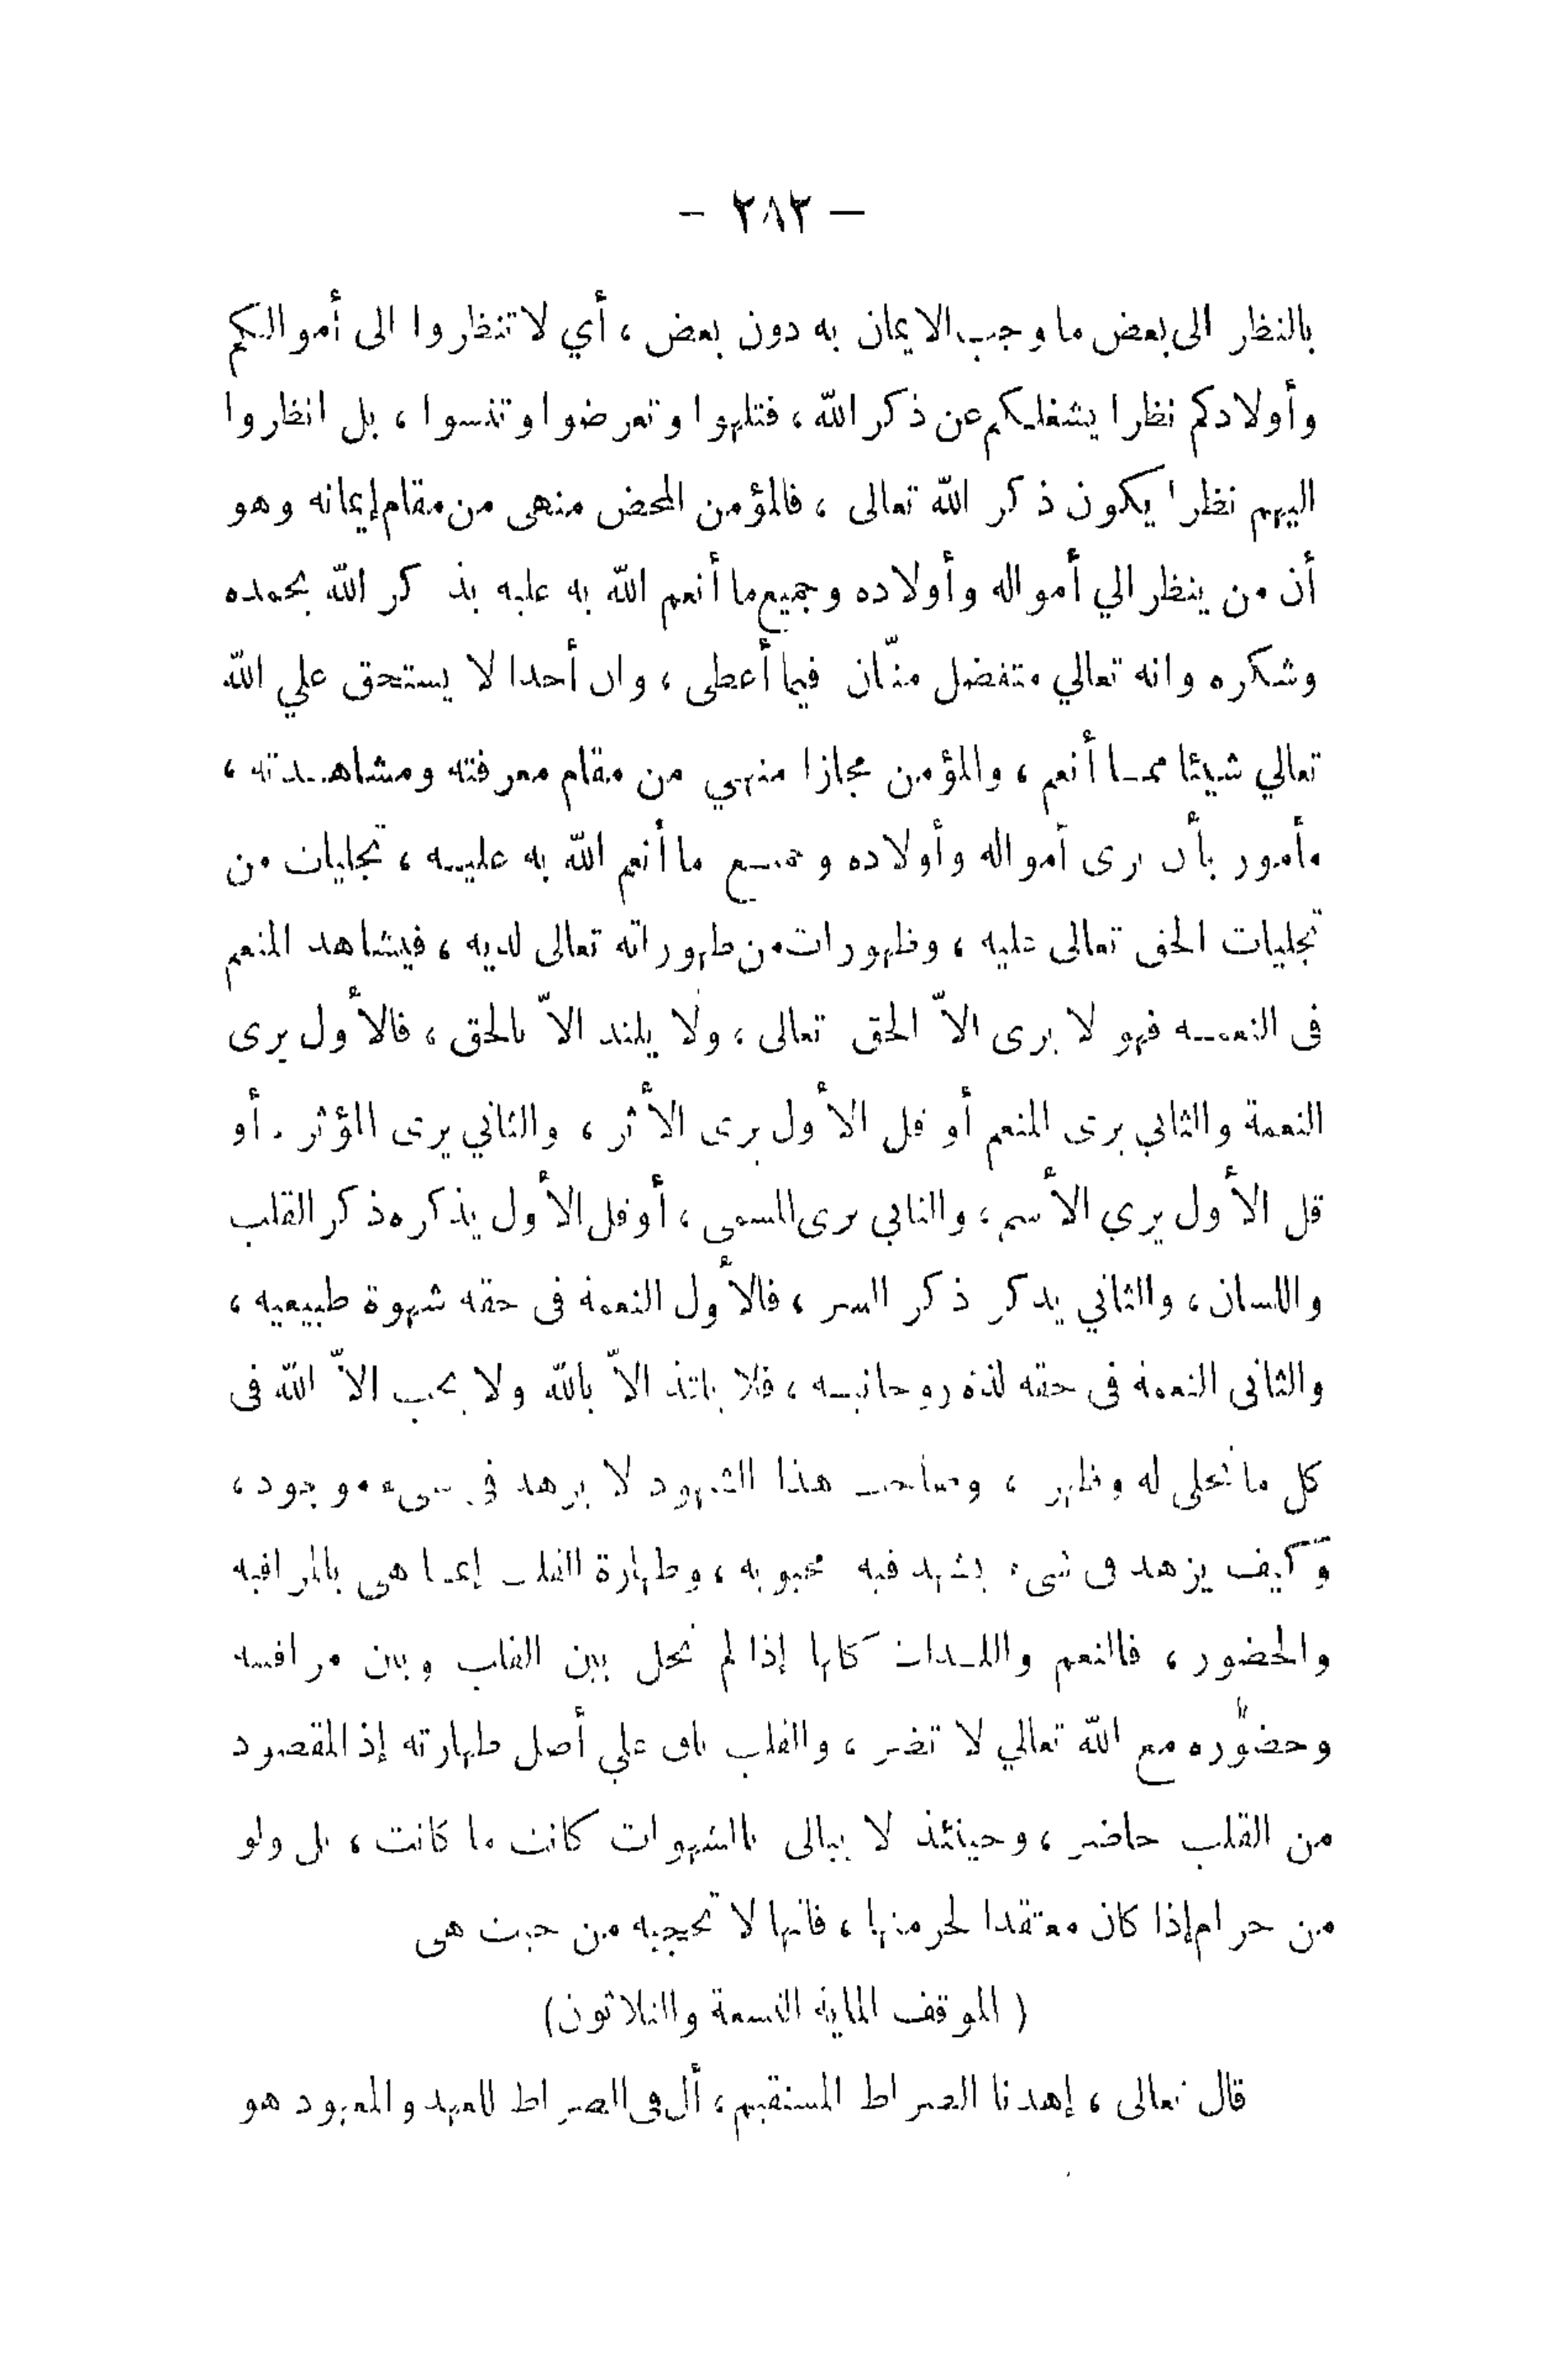 — ٢٨٢ —
بالنظر الى بعض ما وجب الايمان به دون بعض ، أي لا تنظروا الى أموالكم
وأولادكم نظرا يشغلكم عن ذكر الله ، فتلهوا وتعرضوا وتنسوا ، بل انظروا
اليهم نظرا يكون ذكر الله تعالى ، فالمؤمن المحض منهى من مقام إيمانه وهو
أن من ينظر الي أمواله وأولاده وجميع ما أنعم الله به عليه بذكر الله بحمده
وشكره وانه تعالي متفضل منّان فيما أعطى ، وان أحدا لا يستحق علي الله
تعالي شيئا ممـا أنعم ، والمؤمن مجازا منهي من مقام معرفته ومشاهدته ،
مأمور بأن يرى أمواله وأولاده وجميع ما أنعم الله به عليه ، تجليات من
تجليات الحق تعالى عليه ، وظهورات من ظهوراته تعالى لديه ، فيشاهد المنعم
فى النعمة فهو لا يرى الاّ الحق تعالى ، ولا يلتذ الاّ بالحق ، فالأول يرى
النعمة والثاني يرى المنعم أو قل الأول يرى الأثر ، والثاني يرى المؤثر . أو
قل الأول يري الأسم ، والثاني يرى المسمى ، أو قل الأول يذكره ذكر القلب
واللسان ، والثاني يذكر ذكر السر ، فالأول النعمة فى حقه شهوة طبيعيه ،
والثانى النعمة فى حقه لذة روحانيـه ، فلا يلتذ الاّ بالله ولا يحب الاّ الله فى
كل ما تجلى له وظهر ، وصاحب هذا الشهود لا يزهد في شيء موجود ،
وكيف يزهد فى شىء يشهد فيه محبوبه ، وطهارة القلب إنمـا هى بالمراقبه
والحضور ، فالنعم واللـذات كلها إذا لم تحل بين القلب وبين مراقبته
وحضوره مع الله تعالي لا تضر ، والقلب باق علي أصل طهارته إذ المقصود
من القلب حاضر ، وحينئذ لا يبالى بالشهوات كانت ما كانت ، بل ولو
من حرام إذا كان معتقدا لحرمتها ، فانها لا تحجبه من حيث هى
( الموقف الماية التسعة والثلاثون)
قال تعالى ، إهدنا الصراط المستقيم ، أل فى الصراط للعهد والمعهود هو